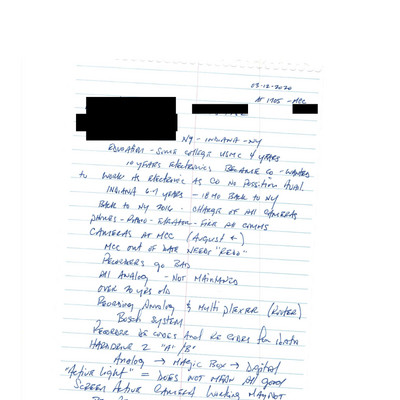 03-12-2020
AT 1905 - MCC
NY - INDIANA - NY
EDUCATION - SOME COLLEGE USMC 4 YEARS
10 YEARS ELECTRONICS BECAME CO - WANTED
to WORK AS ELECTRONIC AS CO NO POSITION AVAIL
INDIANA 6-7 YEARS - 18 MO BACK TO NY
BACK TO NY 2016 - CHARGE OF All CAMERAS
PHONES - RADIO - FIRE AL COMMS
CAMERAS AT MCC (AUGUST
MCC OUT OF DATE NEEDS "REDO"
RECORDERS GO BAD
All ANALOG - NOT MAINTAINED
OVER 20 YRS OLD
RECORDING ANALOG & MULTIPLEXER (ROUTER)
BOSCH SYSTEM
RECORDER DE CODES AND RE CODES for DATA
HARDDRIVE 2 "A" / "B"
ANALOG → MAGIC BOX → DIGITAL
"ACTIVE LIGHT" = DOES NOT MEAN All GOOD
SCREEN ACTIVE CAMERA WORKING MAY NOT